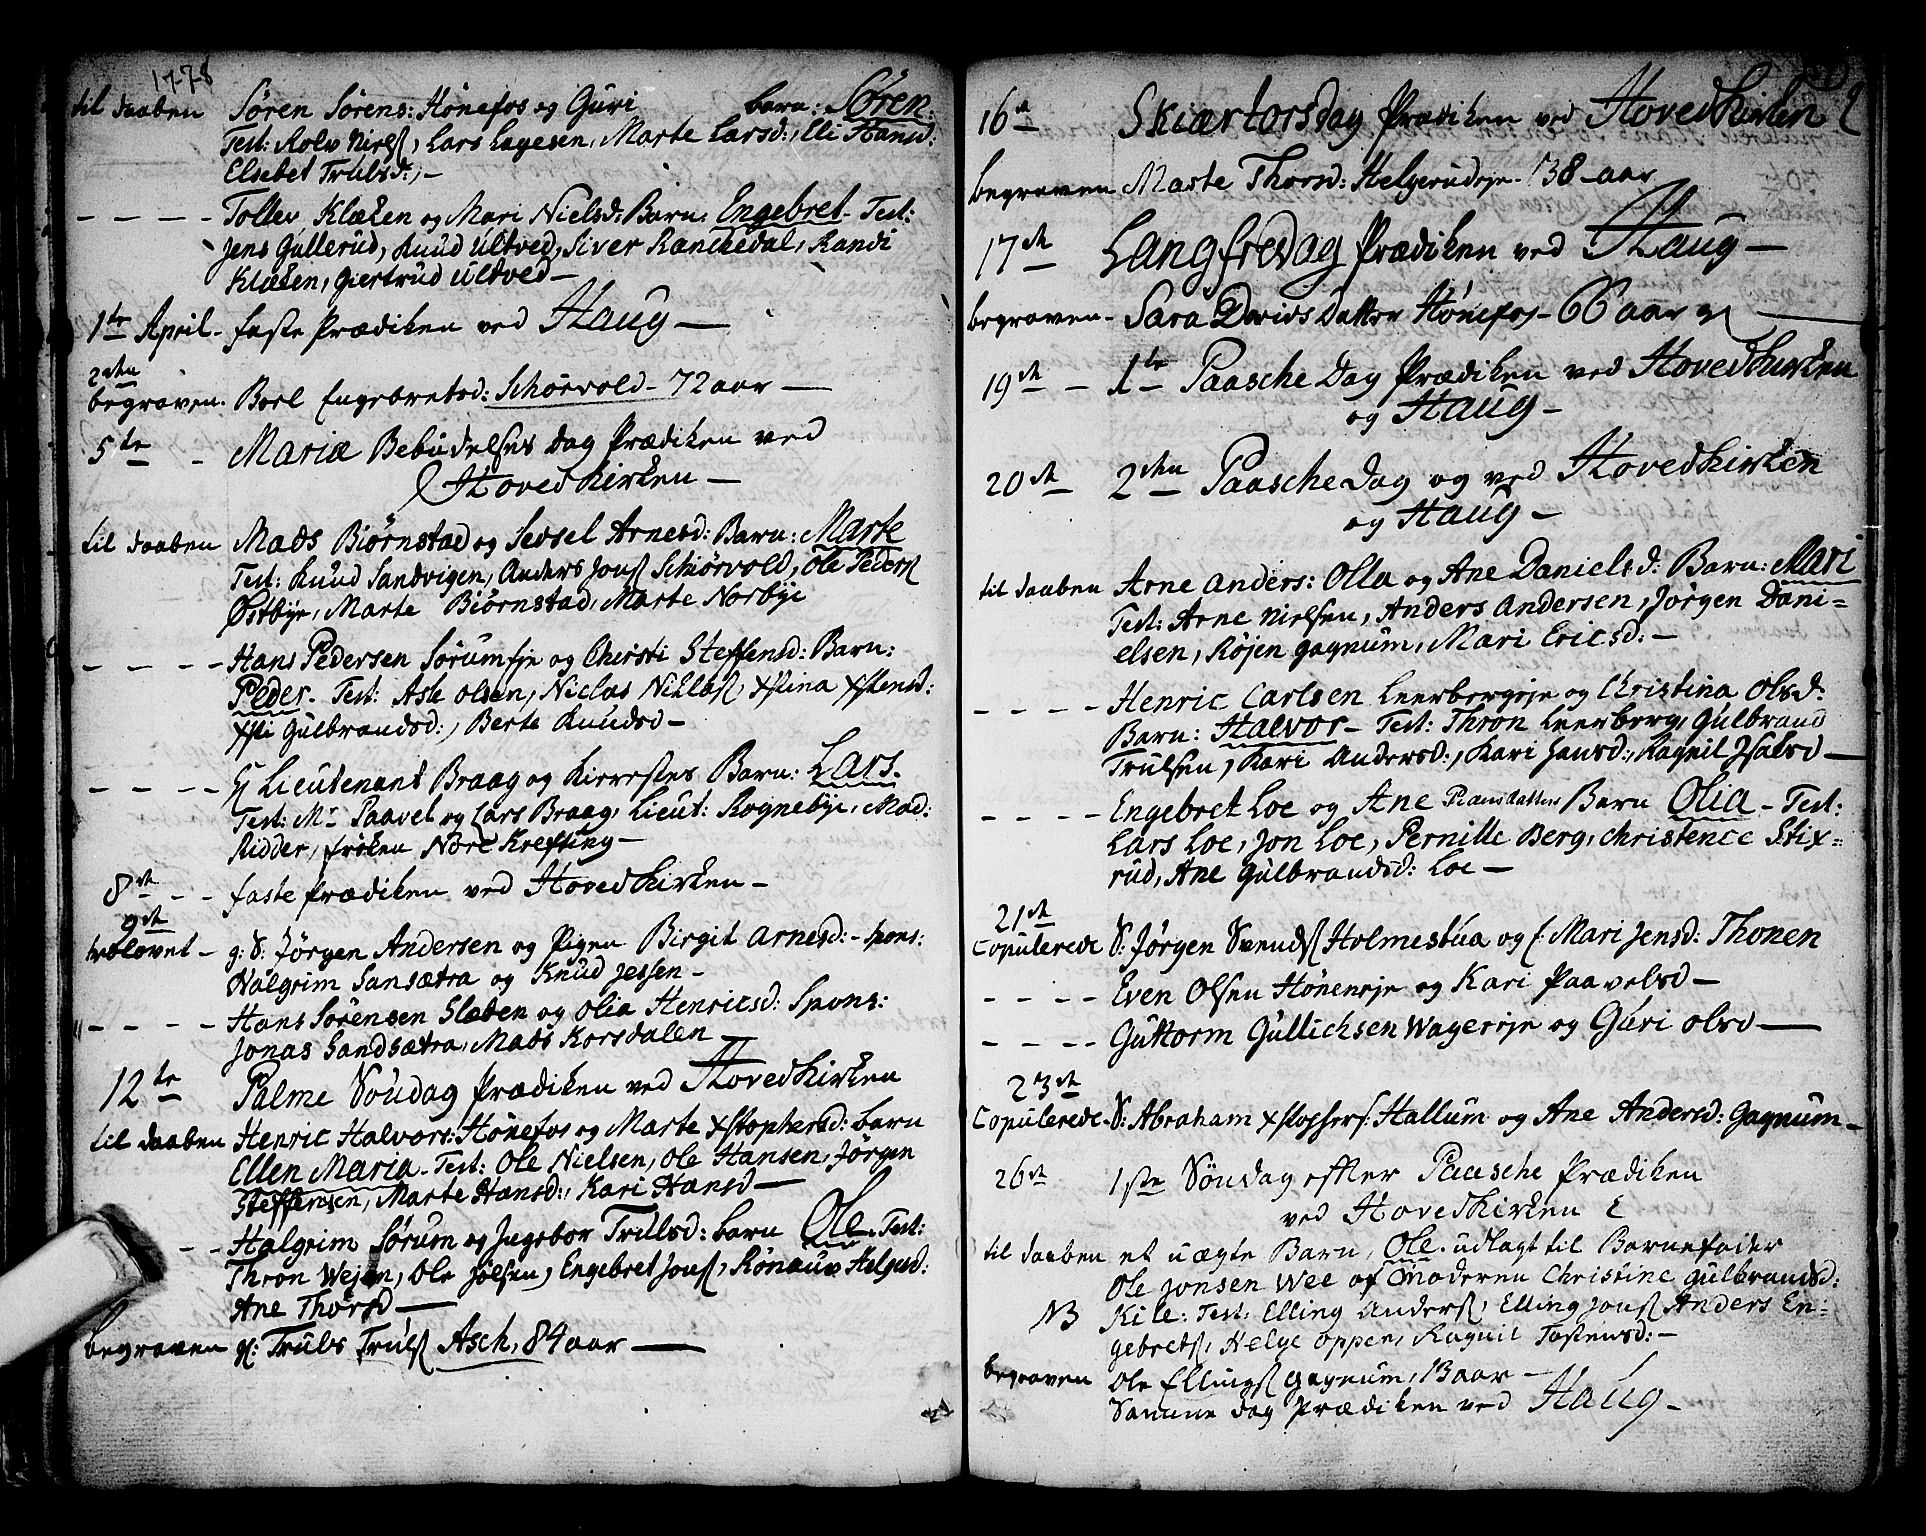 1778
til daaben Søren Sørens: Hønefos og Guri barn: Søren.
Test: Rolv Nielsſ, Lars Lagesen, Marte Larsd:, Elli Hansd:
Elsebet Trulsd:,-
- - - - Tollev Klæken og Mari Nielsd: Barn: Engebret. Test:
Jens Gullerud, Knud Ultved, Siver Ranckedal, Randi
Klæken, Giertrud Ultved-
1te April- faste Prædiken ved Haug-
2den
begraven. Boel Engebretsd: Schørvold- 72 aar-
5te - Mariæ Bebudelses Dag Prædiken ved
Hovedkirken-
til daaben Mads Biørnstad og Sessel Arnesd: Barn: Marte
Test: Knud Sandvigen, Anders Jonsſ Schiørvold, Ole Pedersſ
Østbye, Marte Biørnstad, Marte Norbye
- - - - Hans Pedersen Sørumeje og Christi Steffensd: Barn:
Peder. Test: Asle Olsen, Niclas Niklasſ, Xstina Xstensd:
Xsti Gulbrandsd:, Berte Knudsd-
- - - - Lieutenant Braag og Kierestes Barn: Lars.
Test: Mr Paavel og Lars Braag, Lieut: Rognebye, Mad:
Ridder, frøken Nore Krefting-
8de - - faste Prædiken ved Hovedkirken-
9de
trolovet- g: S: Jørgen Andersen og Pigen Birgit Arnesd:- Spons:
Halgrim Sansætra og Knud Jessen-
- - - - Hans Sørensen Slaben og Olia Henricsd: Spons:
Jonas Sandsætra, Mads Korsdalen-
12te Palme Søndag Prædiken ved Hovedkirken
til daaben Henric Halvors: Hønefos og Marte Xstophersd: barn
Ellen Maria- Test: Ole Nielsen, Ole Hansen, Jørgen
Steffensen, Marte Hansd:, Kari Hansd-
- - Halgrim Sørum og Ingebor Trulsd: barn Ole. Test:
Thron Wejen, Ole Joelsen, Engebret Jonsſ, Rønauv Helgesd:
Ane Thorsd-
begraven g: Truls Trulsſ Asch, 84 aar-
16de Skiærtorsdag Prædiken ved Hovedkirken
begraven Marte Thorsd: Helgerudeje- 38- aar
17de Langfredag Prædiken ved Haug-
begraven- Sara Davids Datter Hønefos- 66 aar
19de - 1te Paasche Dag Prædiken ved Hovedkirken
og Haug-
20de 2den Paasche Dag og ved Hovedkirken
og Haug-
til daaben Arne Anders: Olla og Ane Danielsd: Barn: Mari
Test: Arne Nielsen, Anders Andersen, Jørgen Dani=
elsen, Røjen Gagnum, Mari Ericsd:-
- - - - Henric Carlsen Leerbergeje og Christina Olsd:
Barn: Halvor- Test: Thron Leerberg, Gulbrand
Trulsen, Kari Andersd:, Kari Hansd:, Ragnil
- - - - Engebret Loe og Ane Barn Olia- Test:
Lars Loe, Jon Loe, Pernille Berg, Christence Stix=
rud, Ane Gulbrandsd: Loe-
21de
Copulerede S: Jørgen Svendsſ Holmestua og f: Mari Jensd: Thonen
- - - - Even Olsen Høneneje og Kari Paavelsd-
- - - - Guttorm Gullichsen Wagereje og Guri Olsd-
23de
Copulerede. S: Abraham Hallum og Ane Andersd: Gagnum-
26de 1ste Søndag efter Paasche Prædiken
ved Hovedkirken
til daaben et uægte Barn, Ole. udlagt til Barnefader
Ole Jonsen Wee af Moderen Christine Gulbrandsd:
NB Kile: Test: Elling Andersſ, Elling Jonsſ Anders En=
gebretsſ, Helge Oppen, Ragnil Tostensd:-
begraven Ole Ellingsſ Gagnum, 13 aar-
Samme dag Prædiken ved Haug-